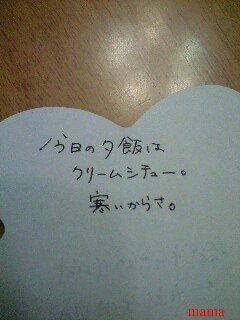 今日の夕飯は
クリームシチュー。
寒いからさ。
mama